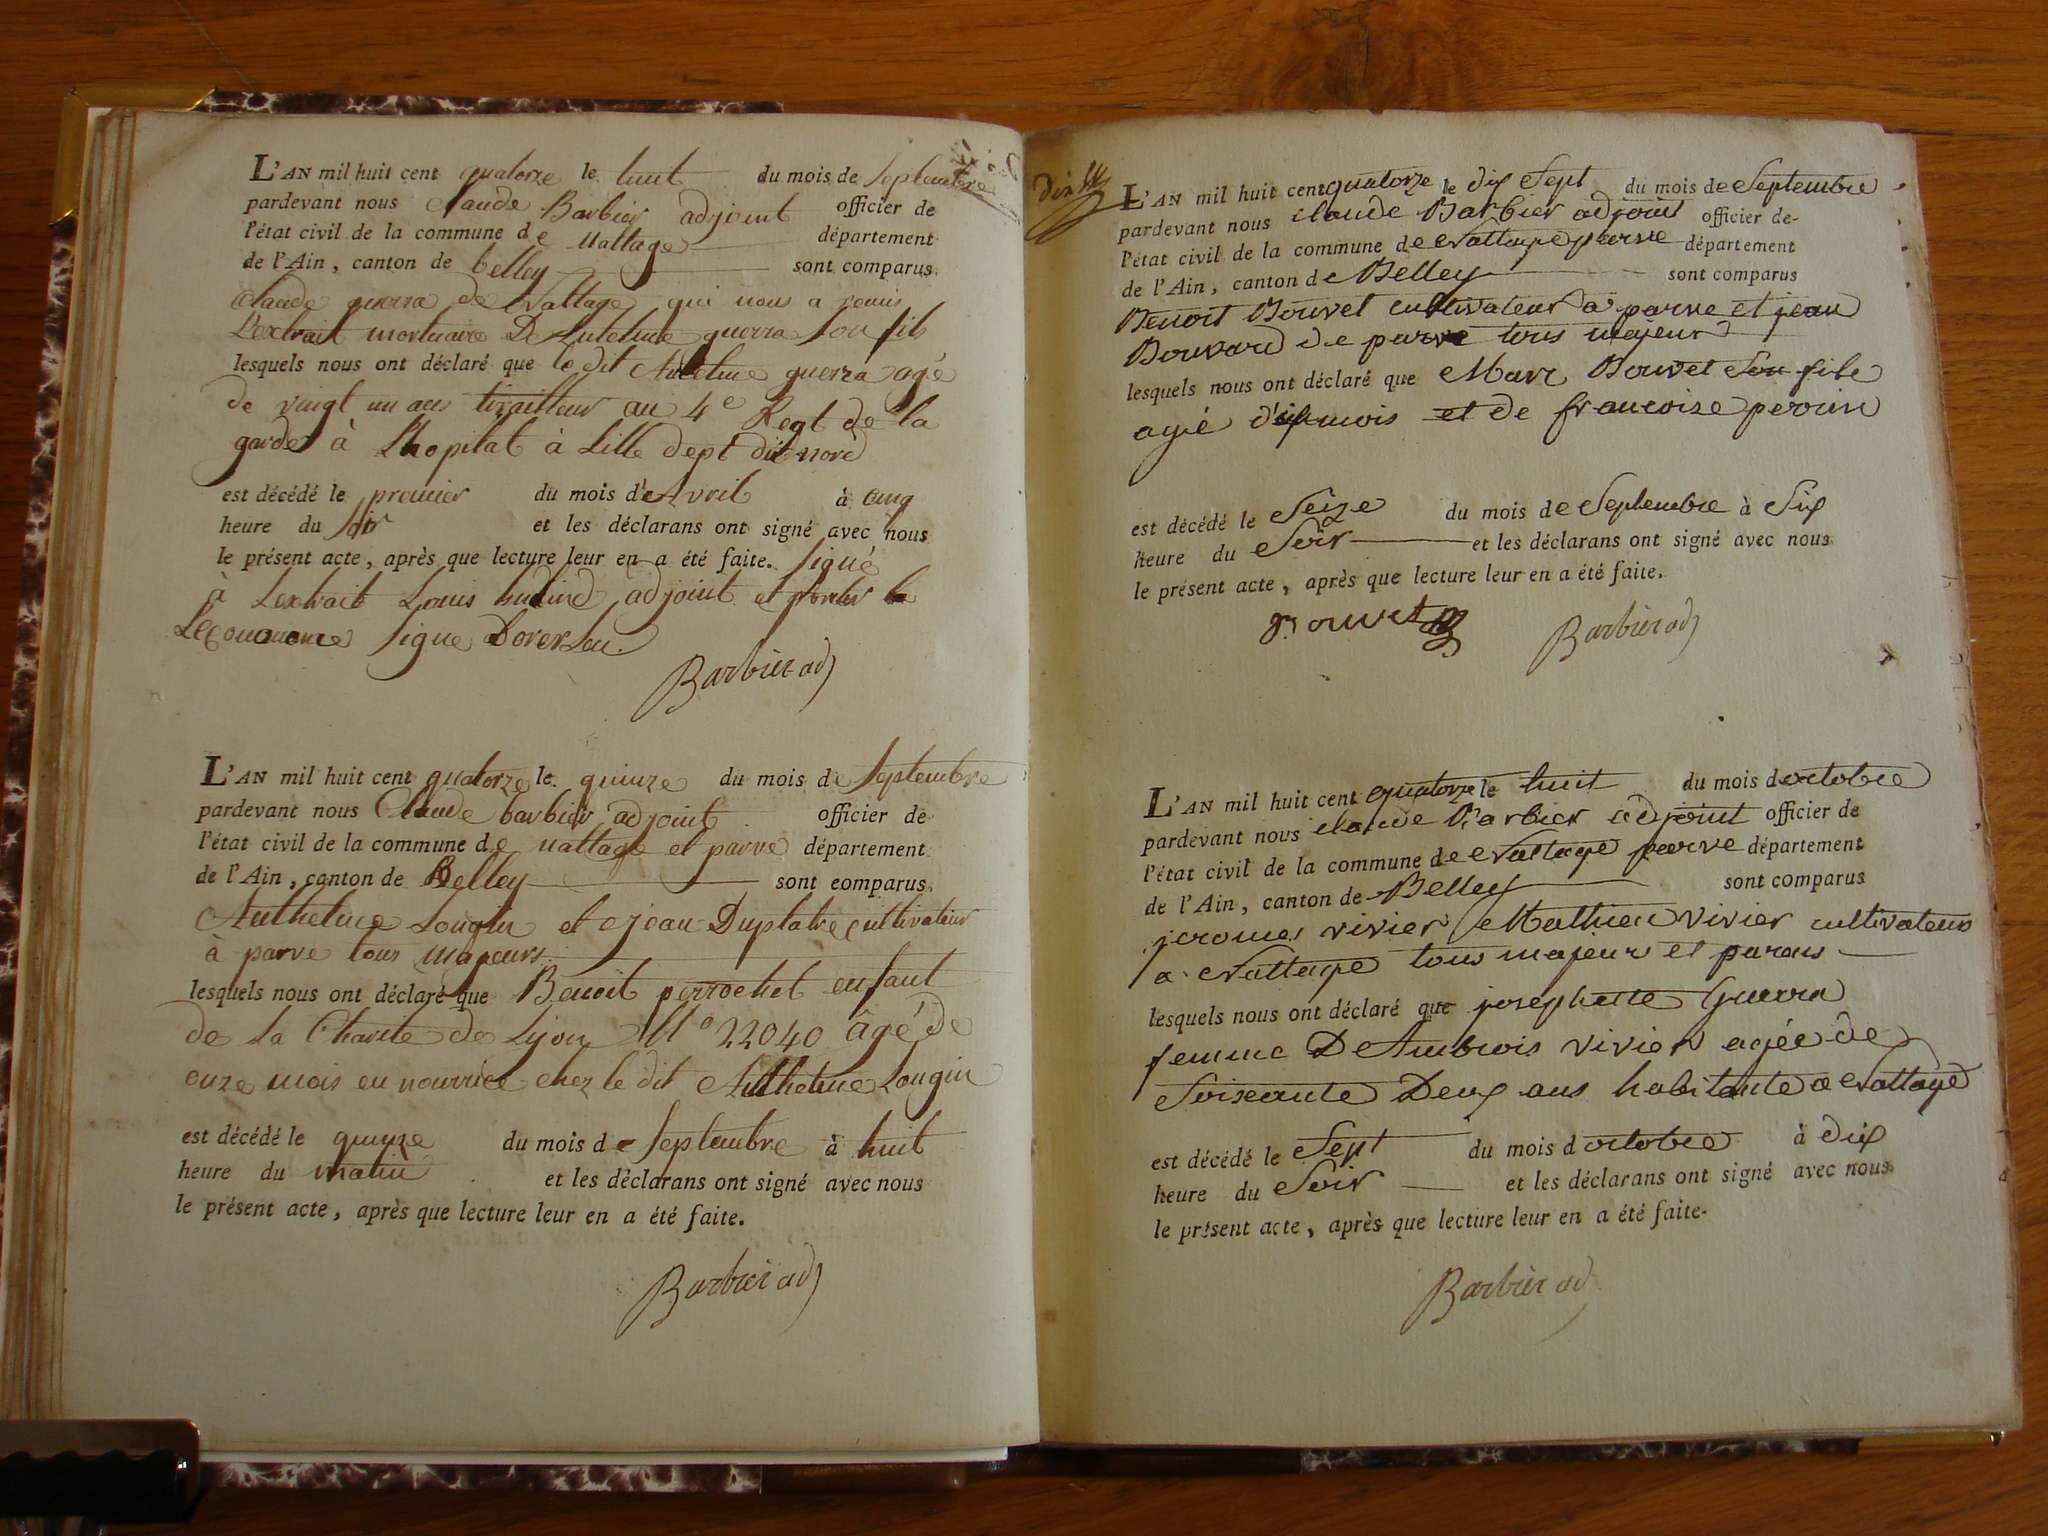 L'AN mil huit cent quatorze le huit du mois de Septembre
pardevant nous Claude Barbier adjoint officier de
l'état civil de la commune de Nattage département
de l'Ain, canton de belley sont comparus
Claude guerra de Nattage qui nous a remis
L'extrait mortuaire D'Anthelme guerra Son fils
lesquels nous ont déclaré que le dit Anthelme guerra agé
de vingt un ans tirailleur au 4e Regt de la
garde à L'hopital à Lille dept du nord
est décédé le premier du mois d'Avril à cinq
heure du soir et les déclarans ont signé avec nous
le présent acte, après que lecture leur en a été faite. signé
à L'extrait Louis adjoint et pour
signe
Barbier adj
L'AN mil huit cent quatorze le quinze du mois de Septembre
pardevant nous Claude barbier adjoint officier de
l'état civil de la commune de nattage et parve département
de l'Ain, canton de Belley sont comparus
Anthelme Longin et jean Duplatre cultivateur
à parve tous majeurs
lesquels nous ont déclaré que Benoit perrochet enfant
de la Charite de Lyon No 22040 âgé de
onze mois en nourrice chez le dit Anthelme Longin
est décédé le quinze du mois de Septembre à huit
heure du matin et les déclarans ont signé avec nous
le présent acte, après que lecture leur en a été faite.
Barbier adj
L'AN mil huit cent quatorze le dix Sept du mois de Septembre
pardevant nous claude Barbier adjoint officier de
l'état civil de la commune de Nattage parve département
de l'Ain, canton de Belley sont comparus
Benoit Bouvet cultivateur a parve et jean
Bouvard de parve tous majeurs
lesquels nous ont déclaré que Marc Bouvet Son fils
agé d'six mois et de francoise perrin
est décédé le Seize du mois de Septembre à Six
heure du Soir et les déclarans ont signé avec nous
le présent acte, après que lecture leur en a été faite.
Bouvet Barbier adj
L'AN mil huit cent quatorze le huit du mois doctobre
pardevant nous claude Barbier adjoint officier de
l'état civil de la commune de Nattage parve département
de l'Ain, canton de Belley sont comparus
jerome vivier Mathieu vivier cultivateurs
a Nattage tous majeurs et parans
lesquels nous ont déclaré que josephette Guerra
femme D'Ambrois vivier agée de
Soixante Deux ans habitante a Nattage
est décédé le Sept du mois doctobre à dix
heure du Soir et les déclarans ont signé avec nous
le présent acte, après que lecture leur en a été faite.
Barbier ad